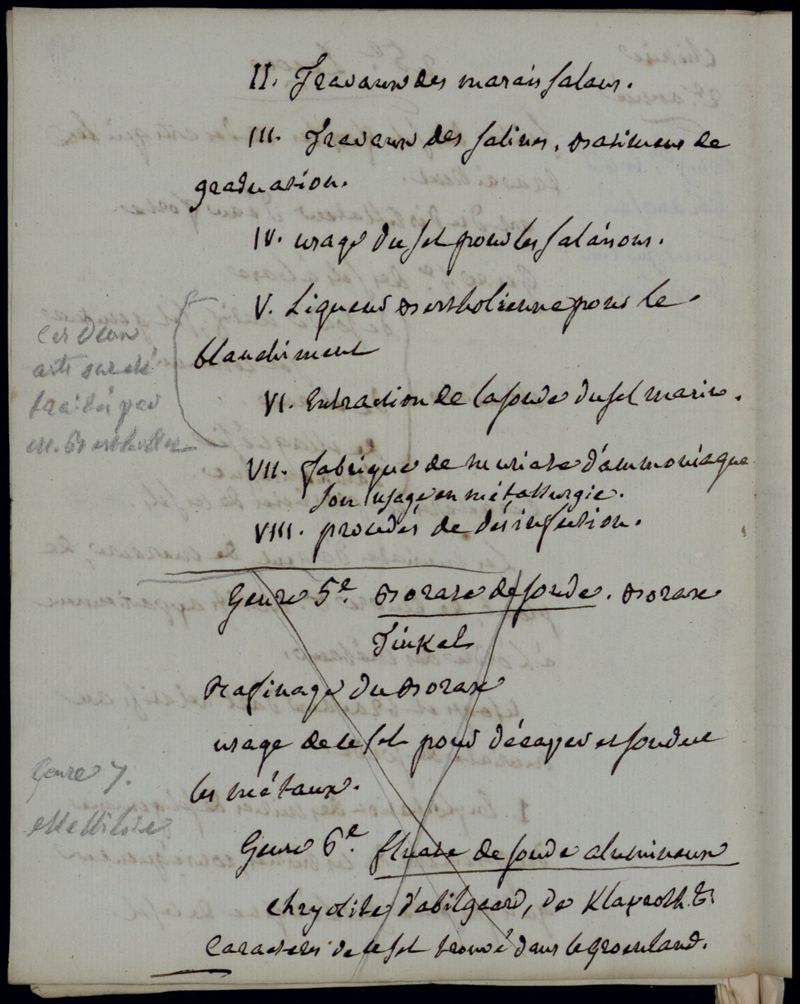 II. Travaux des marais salans.
III. Travaux des salines, batimens de
graduation.
IV. usage du sel pour les salaisons.
V. Liqueur bertholienne pour le
blanchiment
VI. Extraction de la soude du sel marin.
Ces deux
arts ont été
traités par
m. Berthollet
VII. fabrique de muriate d'ammoniaque
son usage en métallurgie.
VIII. procédés de désinfection.
Genre 5e. Borate de soude. Borax
Tinkal
Rafinage du Borax
usage de ce sel pour décaper et souder
les métaux.
Genre 7.
Genre 6e. fluate de soude alumineux
chryolite d'abilgaard, de Klaproth &
Caracteres de ce sel trouvé dans le groenland.